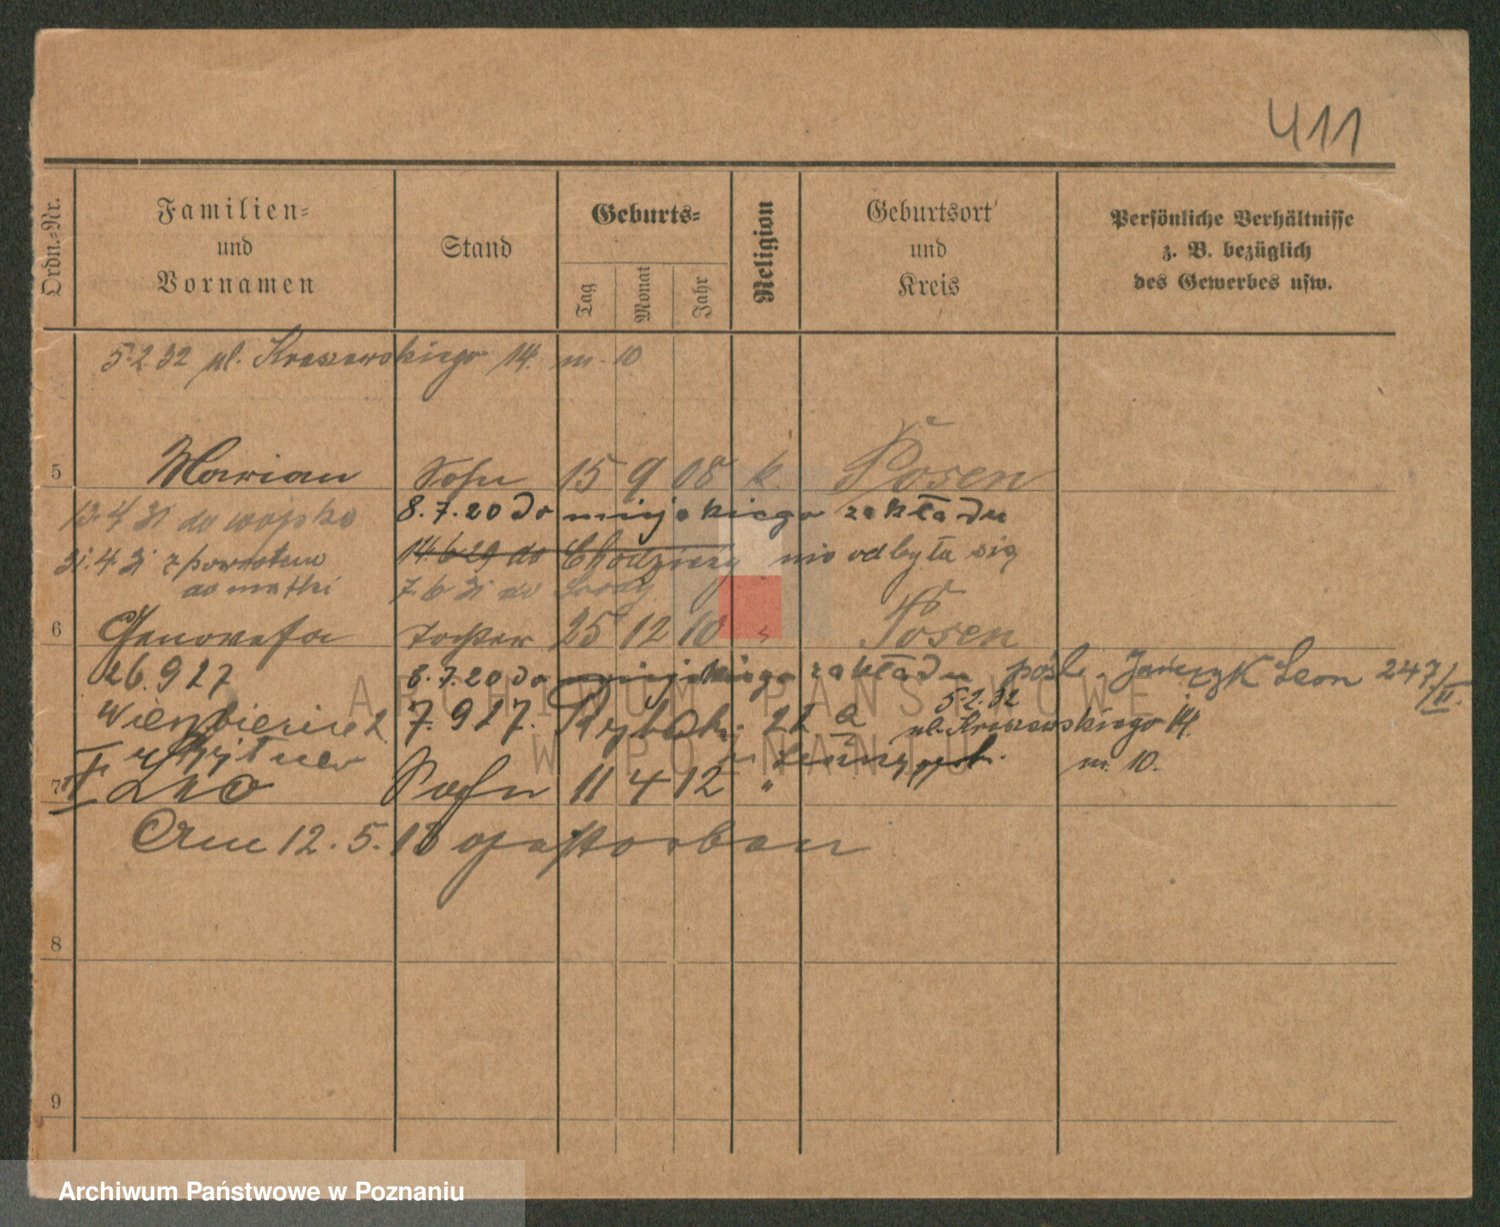 411
Ordn.-Nr.
Familien-
und
Vornamen
Stand
Geburts-
Tag
Monat
Jahr
Religion
Geburtsort
und
Kreis
Persönliche Verhältnisse
z. B. bezüglich
des Gewerbes usw.
5.2.32 ul. Kraszewskiego 14. m. 10
5 Marian Sohn 15 9 08 k Posen
13.4.31 do wojska 8.7.20 do miejskiego zakładu
31.4.31 z powrotem 14.6.29 do Chodzieży nie odbyła się
do matki 7.6.31 do Środy
6 Genovefa Tochter 25 12 10 " Posen
26.9.27 8.7.20 do miejskiego zakładu pośl. Jańczyk Leon 247/II.
7.9.27. Rybaki 22a
5.2.32
ul. Kraszewskiego 14.
m. 10.
7 Leo Sohn 11 4 12 "
Am 12.5.18 gestorben
8
9
ARCHIWUM PAŃSTWOWE
W POZNANIU
Archiwum Państwowe w Poznaniu